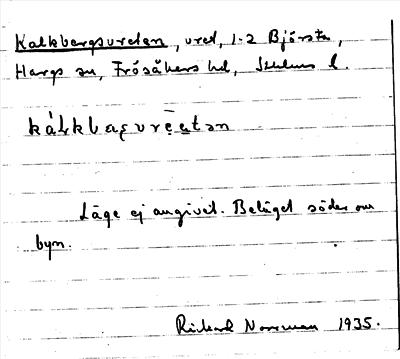 Kalkbergsvreten, vret, 1-2 Björsta,
Hargs sn, Frösåkers hd, Sthlms l.
Läge ej angivet. Beläget söder om
byn.
Rickard Norrman 1935.